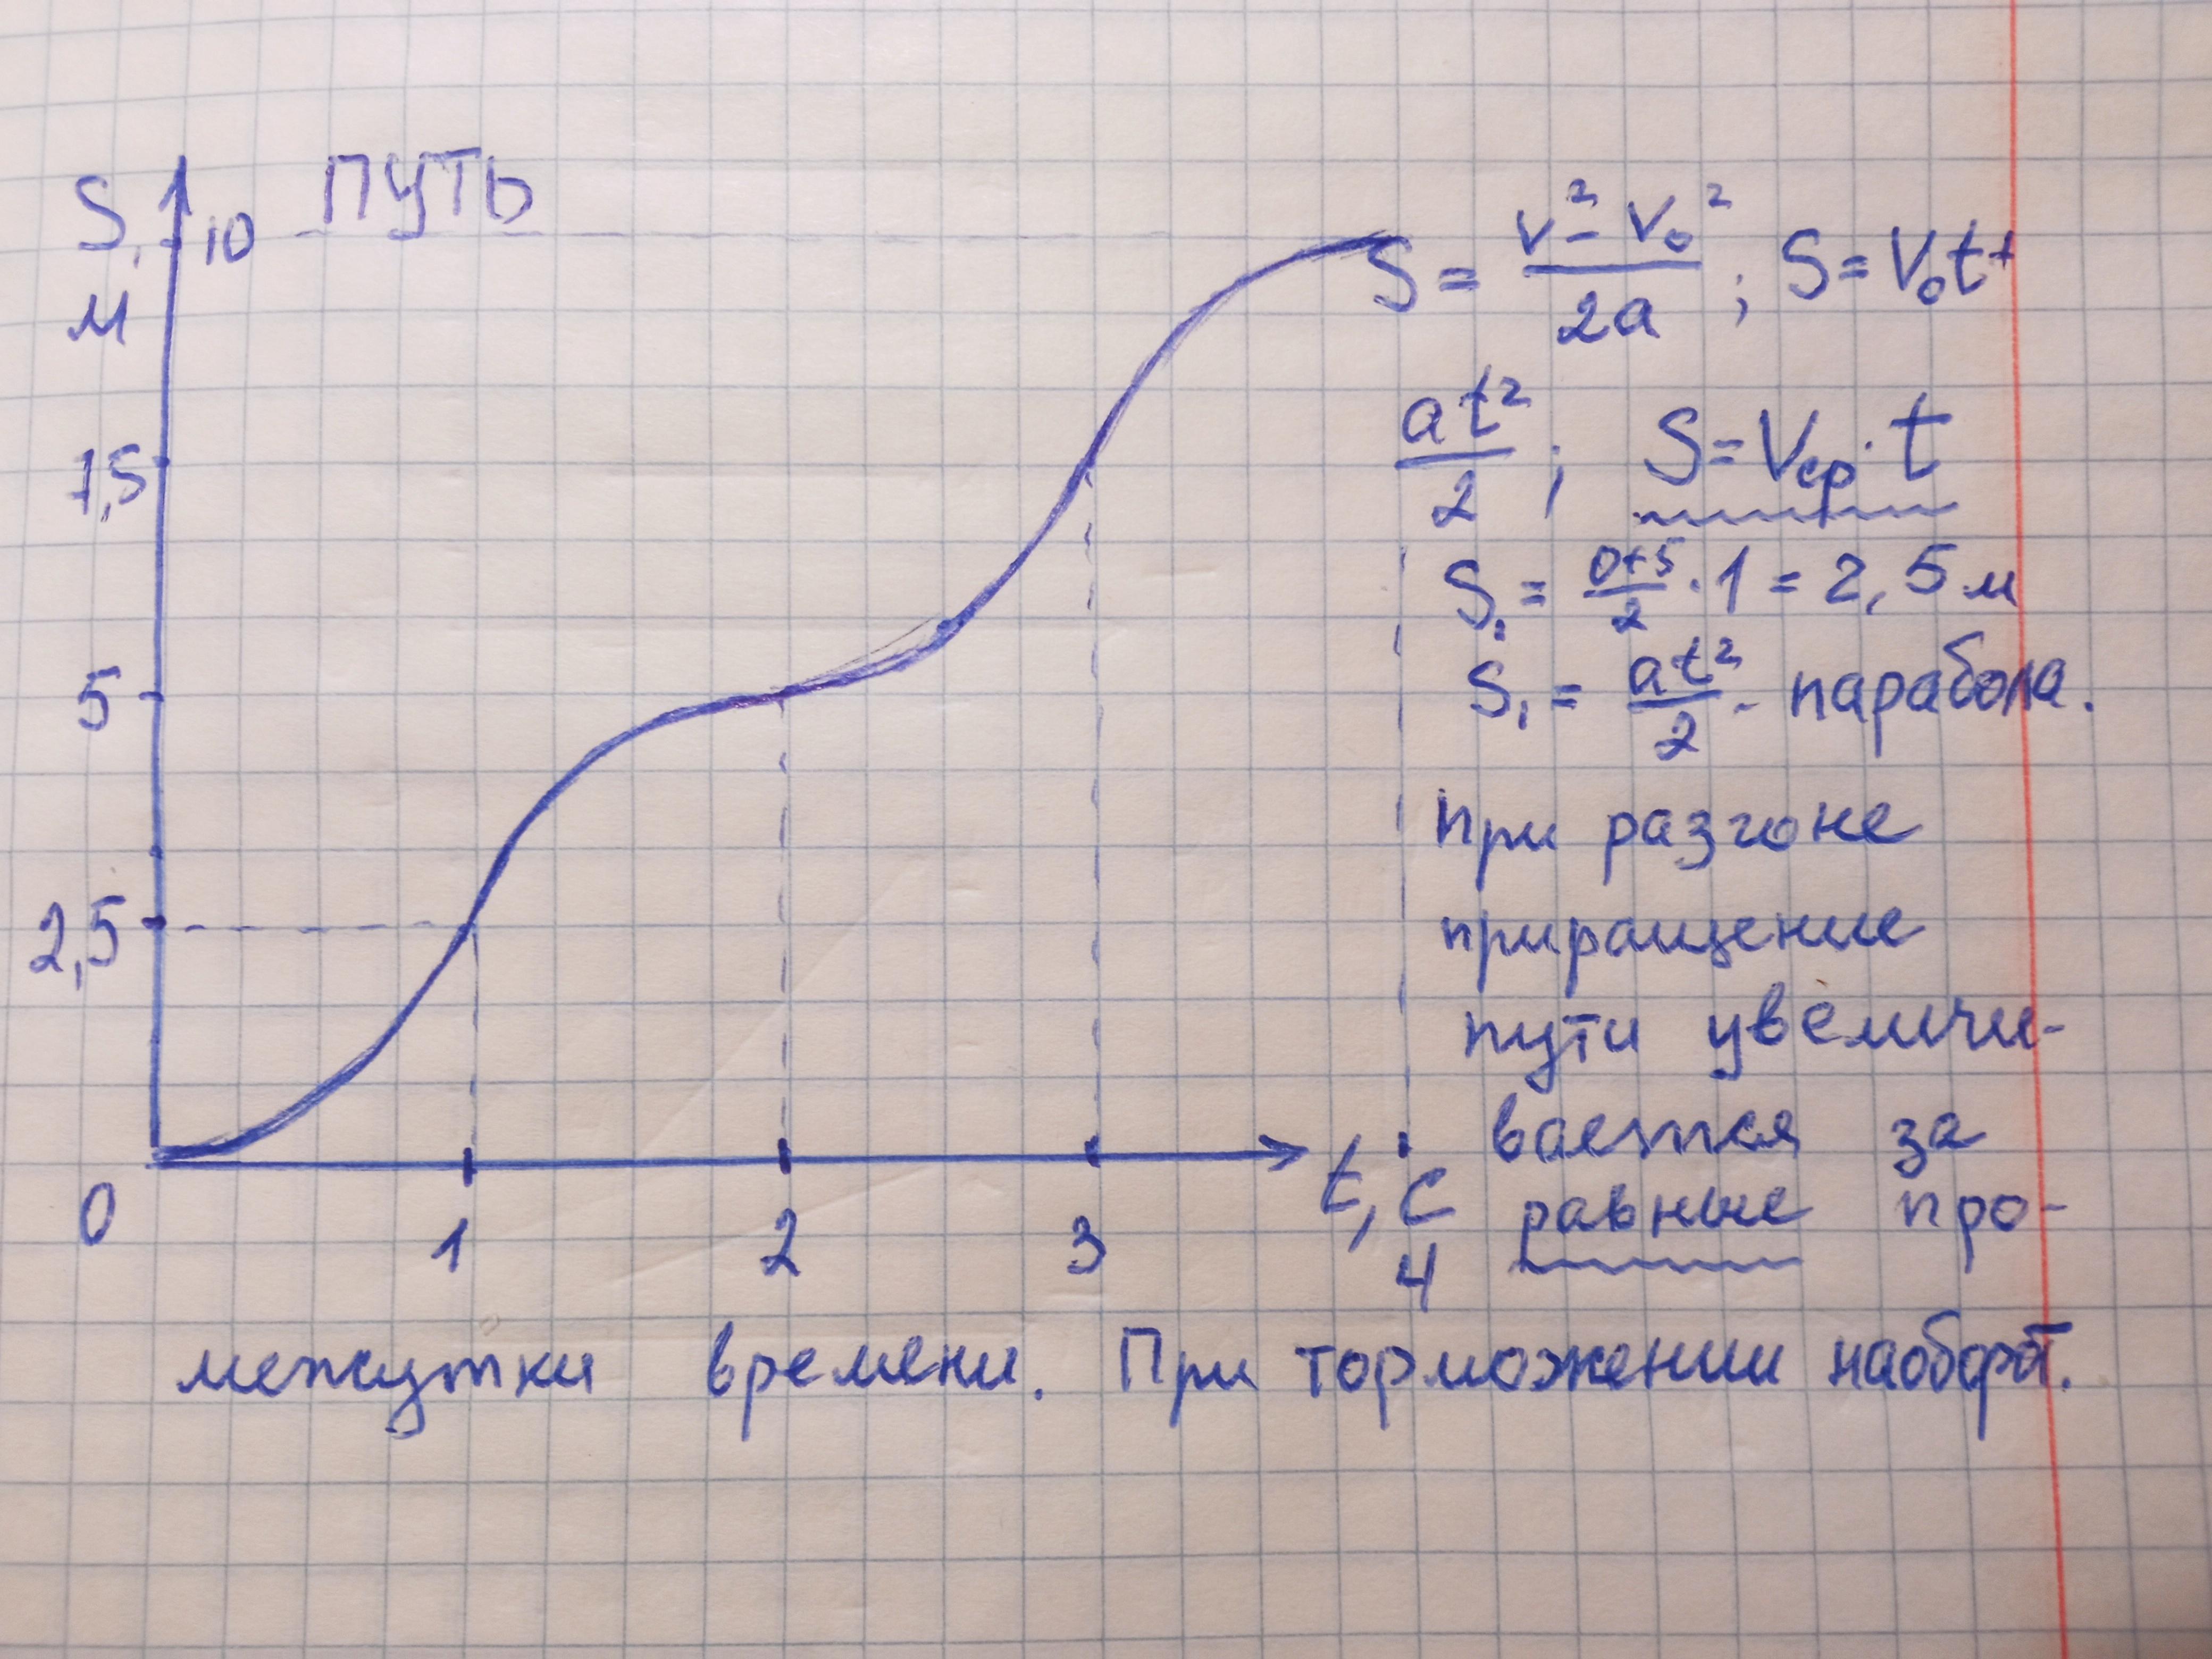 ПУТЬ
S,
м
10
7,5
5
2,5
0
1
2
3
4
t, c
S = (v² - v₀²)/2a ; S = V₀t +
at²/2 ; S = Vср · t
S₁ = (0+5)/2 · 1 = 2,5 м
S₁ = at²/2 - парабола.
при разгоне
приращение
пути увеличи-
вается за
равные про-
межутки времени. При торможении наоборот.